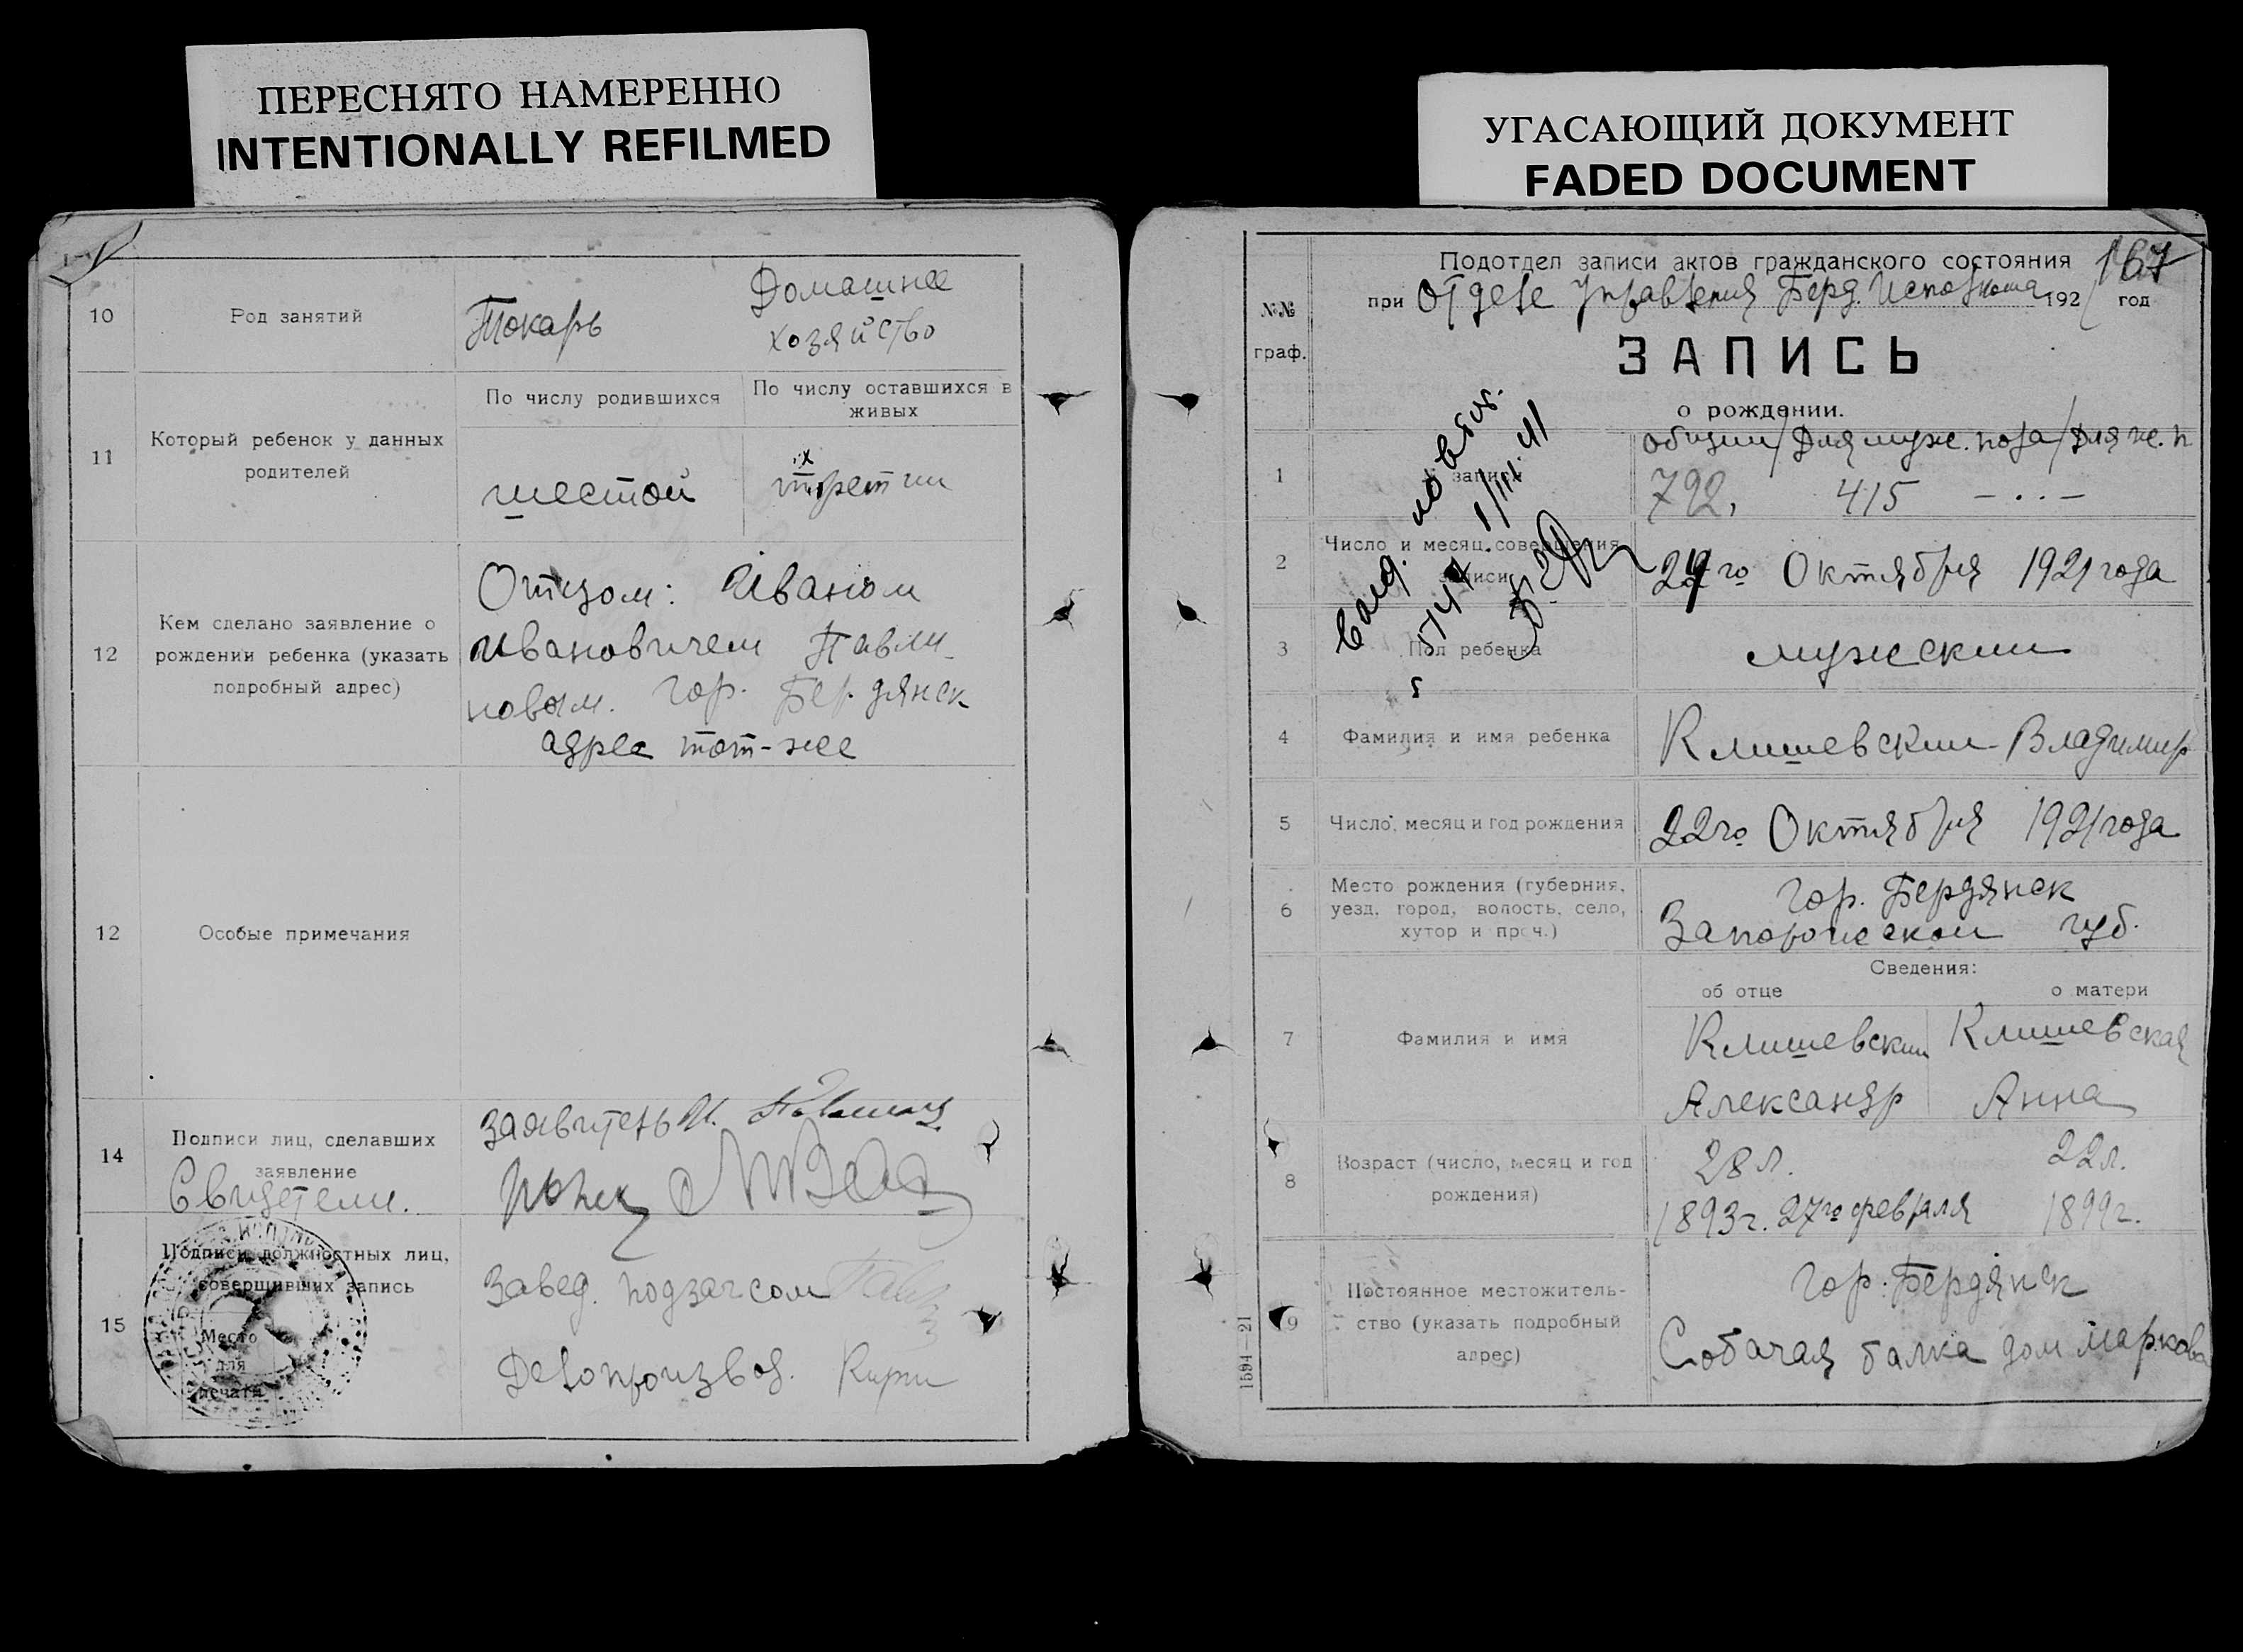 ПЕРЕСНЯТО НАМЕРЕННО
INTENTIONALLY REFILMED
10
Род занятий
Токарь
Домашнее
хозяйство
11
Который ребенок у данных
родителей
По числу родившихся
По числу оставшихся в
живых
шестой
третии
12
Кем сделано заявление о
рождении ребенка (указать
подробный адрес)
Отцом: Иваном
Ивановичем Павли-
новым. гор. Бердянск
адрес тот-же
12
Особые примечания
14
Подписи лиц, сделавших
заявление
Свидетели.
заявитель И.
15
Подписи должностных лиц,
совершивших запись
Место
для
печати
Завед. подзагсом
Делопроизвод.
УГАСАЮЩИЙ ДОКУМЕНТ
FADED DOCUMENT
№№
граф.
Подотдел записи актов гражданского состояния
167
при Отделе Управления Берд. Исполкома 1921 год
ЗАПИСЬ
о рождении.
1
№ записи
общии/Для муж. пола/Для же. п
792. 415 - .. -
2
Число и месяц совершения
записи
29го Октября 1921 года
3
Пол ребенка
мужскии
4
Фамилия и имя ребенка
Клишевскии Владимир
5
Число, месяц и год рождения
22го Октября 1921 года
6
Место рождения (губерния,
уезд, город, волость, село,
хутор и проч.)
Гор. Бердянск
Запорожскои губ.
Сведения:
об отце
о матери
7
Фамилия и имя
Клишевскии
Александр
Клишевская
Анна
8
Возраст (число, месяц и год
рождения)
28 л.
1893г. 27го февраля
22 л.
1899г.
9
Постоянное местожитель-
ство (указать подробный
адрес)
Гор. Бердянск
Собачая балка дом Маркова
1594—21